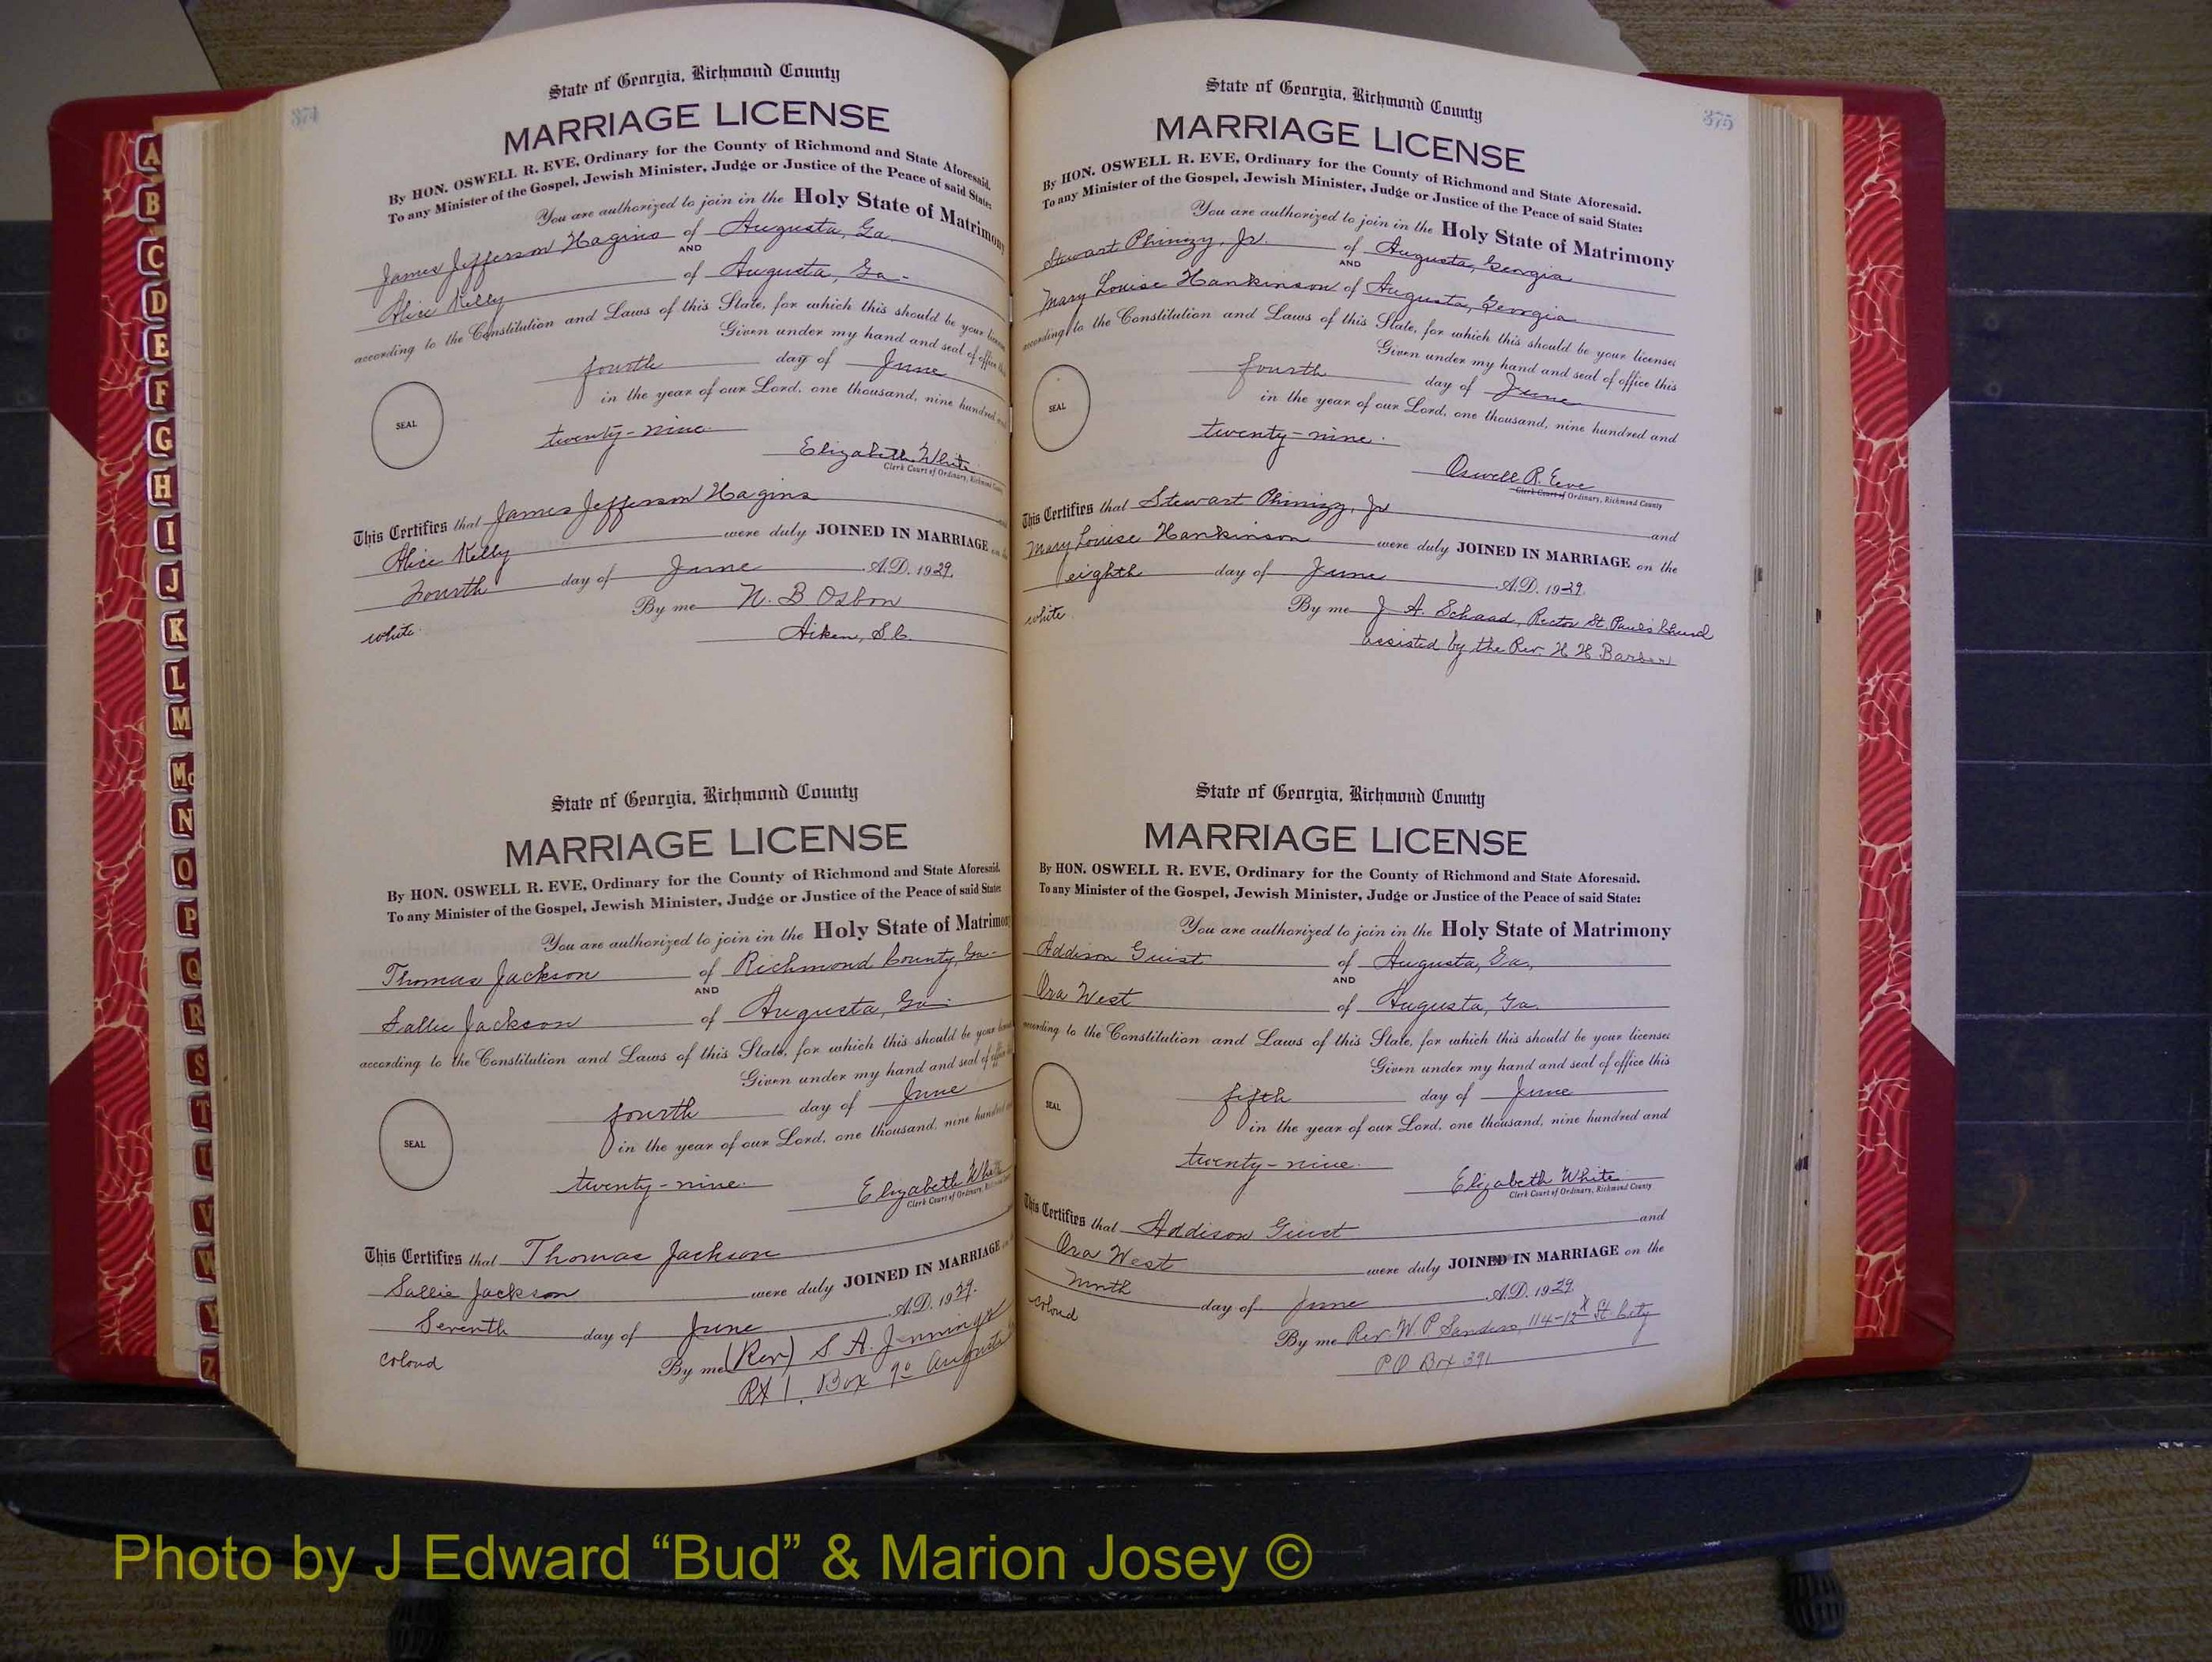 374
State of Georgia, Richmond County
MARRIAGE LICENSE
By HON. OSWELL R. EVE, Ordinary for the County of Richmond and State Aforesaid.
To any Minister of the Gospel, Jewish Minister, Judge or Justice of the Peace of said State:
You are authorized to join in the Holy State of Matrimony
James Jefferson Hagins of Augusta, Ga.
AND
Alice Kelly of Augusta, Ga-
according to the Constitution and Laws of this State, for which this should be your license
Given under my hand and seal of office this
fourth day of June
in the year of our Lord, one thousand, nine hundred and
twenty-nine.
SEAL
Elizabeth White
Clerk Court of Ordinary, Richmond County
This Certifies that James Jefferson Hagins
Alice Kelly were duly JOINED IN MARRIAGE on the
Fourth day of June A.D. 1929.
By me N. B Osbon
white. Aiken, S.C.
State of Georgia, Richmond County
MARRIAGE LICENSE
By HON. OSWELL R. EVE, Ordinary for the County of Richmond and State Aforesaid.
To any Minister of the Gospel, Jewish Minister, Judge or Justice of the Peace of said State:
You are authorized to join in the Holy State of Matrimony
Thomas Jackson of Richmond County, Ga-
AND
Sallie Jackson of Augusta, Ga.
according to the Constitution and Laws of this State, for which this should be your license
Given under my hand and seal of office this
fourth day of June
in the year of our Lord, one thousand, nine hundred and
twenty-nine.
SEAL
Elizabeth White
Clerk Court of Ordinary, Richmond
This Certifies that Thomas Jackson
Sallie Jackson were duly JOINED IN MARRIAGE on the
Seventh day of June A.D. 1929.
colord By me (Rev) S A. Jennings
Rt 1, Box 90 Augusta
375
State of Georgia, Richmond County
MARRIAGE LICENSE
By HON. OSWELL R. EVE, Ordinary for the County of Richmond and State Aforesaid.
To any Minister of the Gospel, Jewish Minister, Judge or Justice of the Peace of said State:
You are authorized to join in the Holy State of Matrimony
Stewart Phinizy, Jr. of Augusta, Georgia
AND
Mary Louise Hankinson of Augusta, Georgia
according to the Constitution and Laws of this State, for which this should be your license:
Given under my hand and seal of office this
fourth day of June
in the year of our Lord, one thousand, nine hundred and
twenty-nine.
SEAL
Oswell R. Eve
Clerk Court of Ordinary, Richmond County
This Certifies that Stewart Phinizy, Jr and
Mary Louise Hankinson were duly JOINED IN MARRIAGE on the
eighth day of June A.D. 1929.
white. By me J. A. Schaad, Rector St. Paul's Church
assisted by the Rev. H H Barber
State of Georgia, Richmond County
MARRIAGE LICENSE
By HON. OSWELL R. EVE, Ordinary for the County of Richmond and State Aforesaid.
To any Minister of the Gospel, Jewish Minister, Judge or Justice of the Peace of said State:
You are authorized to join in the Holy State of Matrimony
Addison Guist of Augusta, Ga.
AND
Ora West of Augusta, Ga.
according to the Constitution and Laws of this State, for which this should be your license:
Given under my hand and seal of office this
fifth day of June
in the year of our Lord, one thousand, nine hundred and
twenty-nine.
SEAL
Elizabeth White
Clerk Court of Ordinary, Richmond County
This Certifies that Addison Guist and
Ora West were duly JOINED IN MARRIAGE on the
Ninth day of June A.D. 1929.
colord By me Rev. W. P Sanders, 114-12 St City
PO Box 391
A
B
C
D
E
F
G
H
I
J
K
L
M
Mc
N
O
P
Q
R
S
T
U
V
W
Y
Z
Photo by J Edward “Bud” & Marion Josey ©